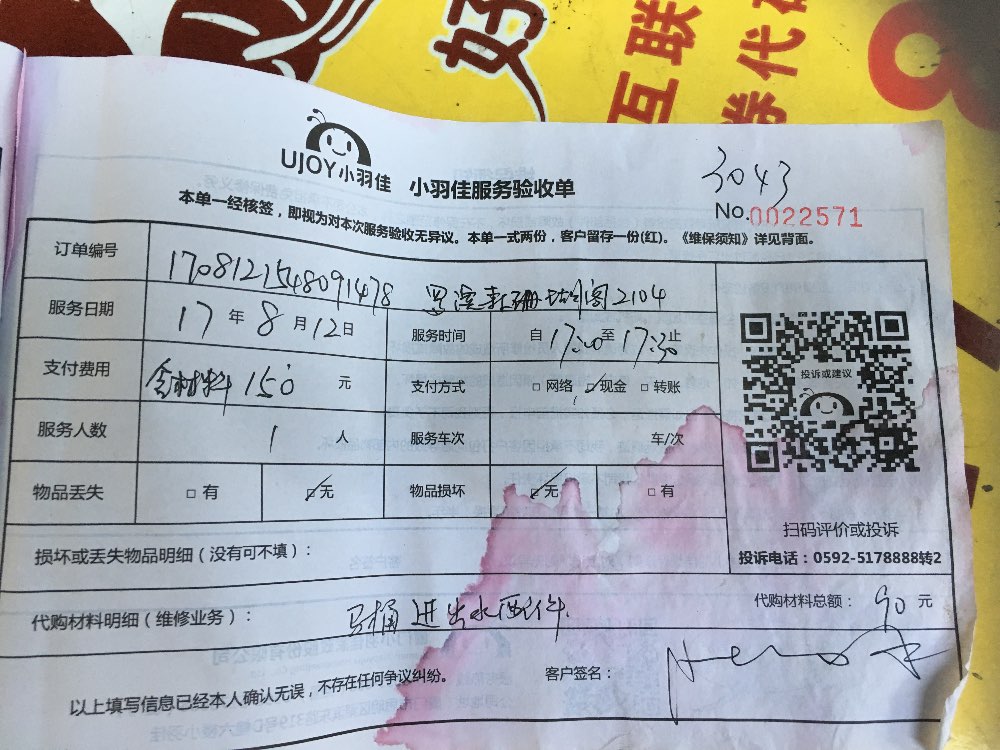 好
互联
券代码
UJOY小羽佳 小羽佳服务验收单
3043
No.0022571
本单一经核签，即视为对本次服务验收无异议。本单一式两份，客户留存一份(红)。《维保须知》详见背面。
订单编号 1708121548091478 2104
服务日期 17 年 8 月 12 日 服务时间 自 17:00 至 17:30 止
支付费用 含材料 150 元 支付方式 □ 网络 ☑ 现金 □ 转账
服务人数 1 人 服务车次 车/次
物品丢失 □ 有 ☑ 无 物品损坏 ☑ 无 □ 有
投诉或建议
扫码评价或投诉
投诉电话：0592-5178888转2
损坏或丢失物品明细（没有可不填）：
代购材料明细（维修业务）： 马桶进出水配件. 代购材料总额： 90 元
以上填写信息已经本人确认无误，不存在任何争议纠纷。 客户签名：